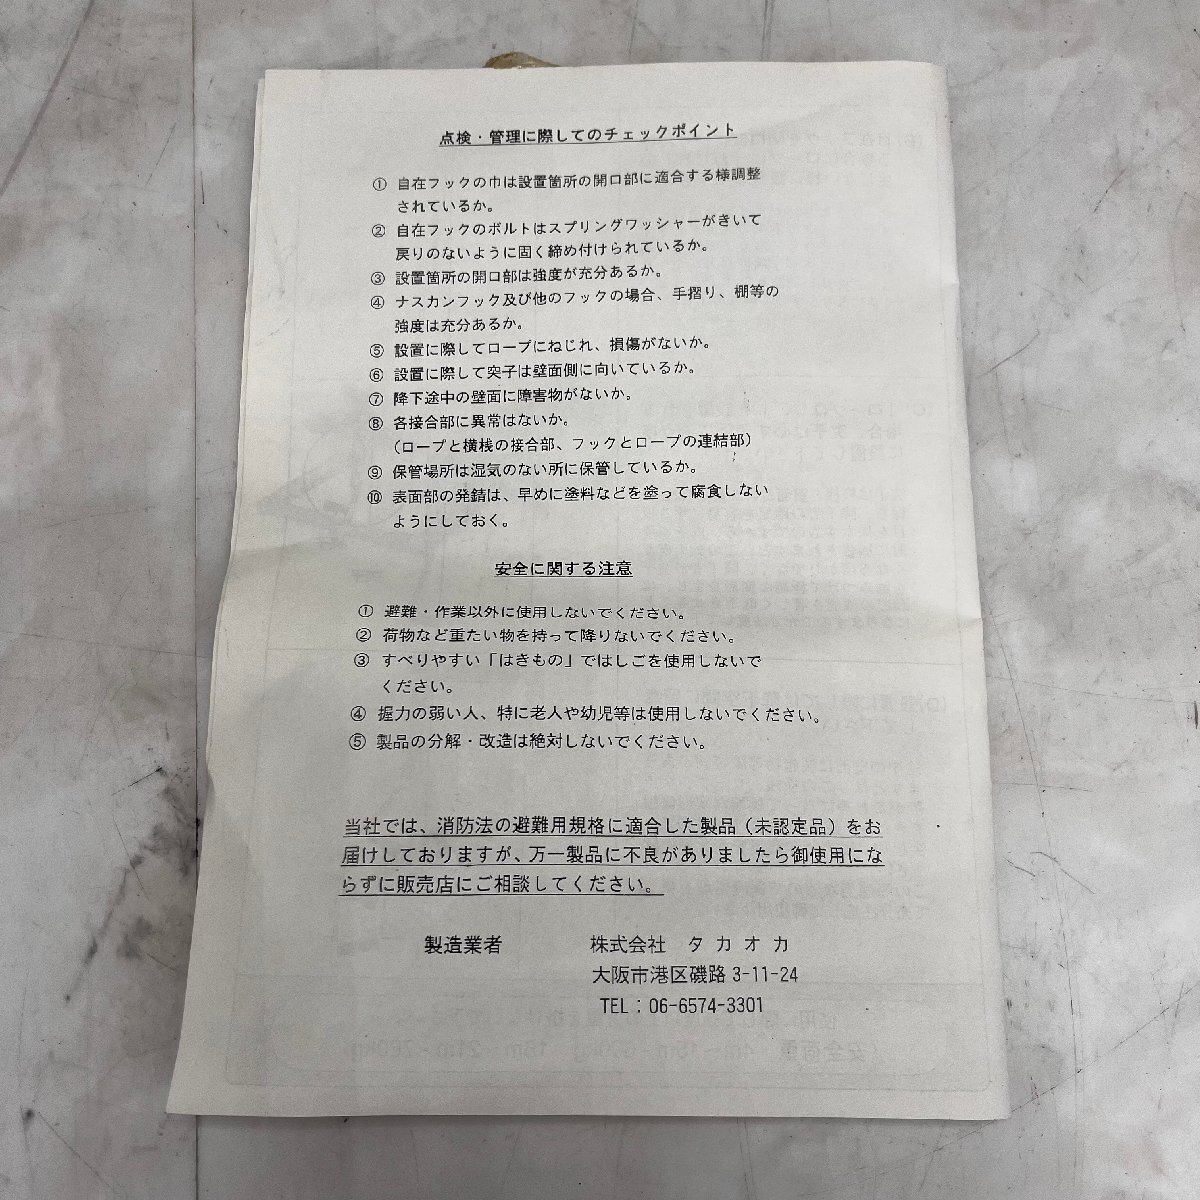 点検・管理に際してのチェックポイント
① 自在フックの巾は設置箇所の開口部に適合する様調整
されているか。
② 自在フックのボルトはスプリングワッシャーがきいて
戻りのないように固く締め付けられているか。
③ 設置箇所の開口部は強度が充分あるか。
④ ナスカンフック及び他のフックの場合、手摺り、棚等の
強度は充分あるか。
⑤ 設置に際してロープにねじれ、損傷がないか。
⑥ 設置に際して突子は壁面側に向いているか。
⑦ 降下途中の壁面に障害物がないか。
⑧ 各接合部に異常はないか。
（ロープと横桟の接合部、フックとロープの連結部）
⑨ 保管場所は湿気のない所に保管しているか。
⑩ 表面部の発錆は、早めに塗料などを塗って腐食しない
ようにしておく。
安全に関する注意
① 避難・作業以外に使用しないでください。
② 荷物など重たい物を持って降りないでください。
③ すべりやすい「はきもの」ではしごを使用しないで
ください。
④ 握力の弱い人、特に老人や幼児等は使用しないでください。
⑤ 製品の分解・改造は絶対しないでください。
当社では、消防法の避難用規格に適合した製品（未認定品）をお
届けしておりますが、万一製品に不良がありましたら御使用にな
らずに販売店にご相談してください。
製造業者 株式会社 タカオカ
大阪市港区磯路 3-11-24
TEL：06-6574-3301